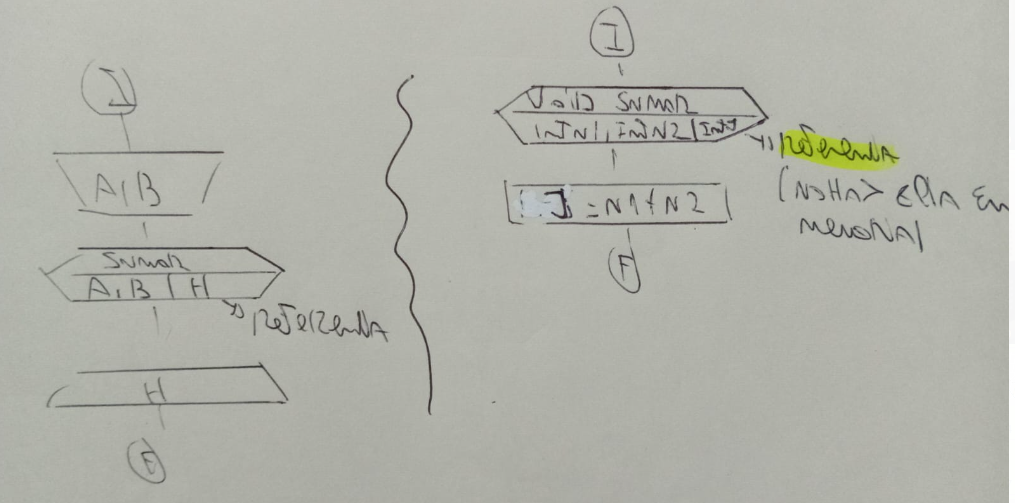 I
A, B
SUMAR
A, B | H
REFERENCIA
H
F
I
VOID SUMAR
INT N1, INT N2 | INT J
REFERENCIA
(NO HAY COPIA EN
MEMORIA)
J = N1 + N2
F